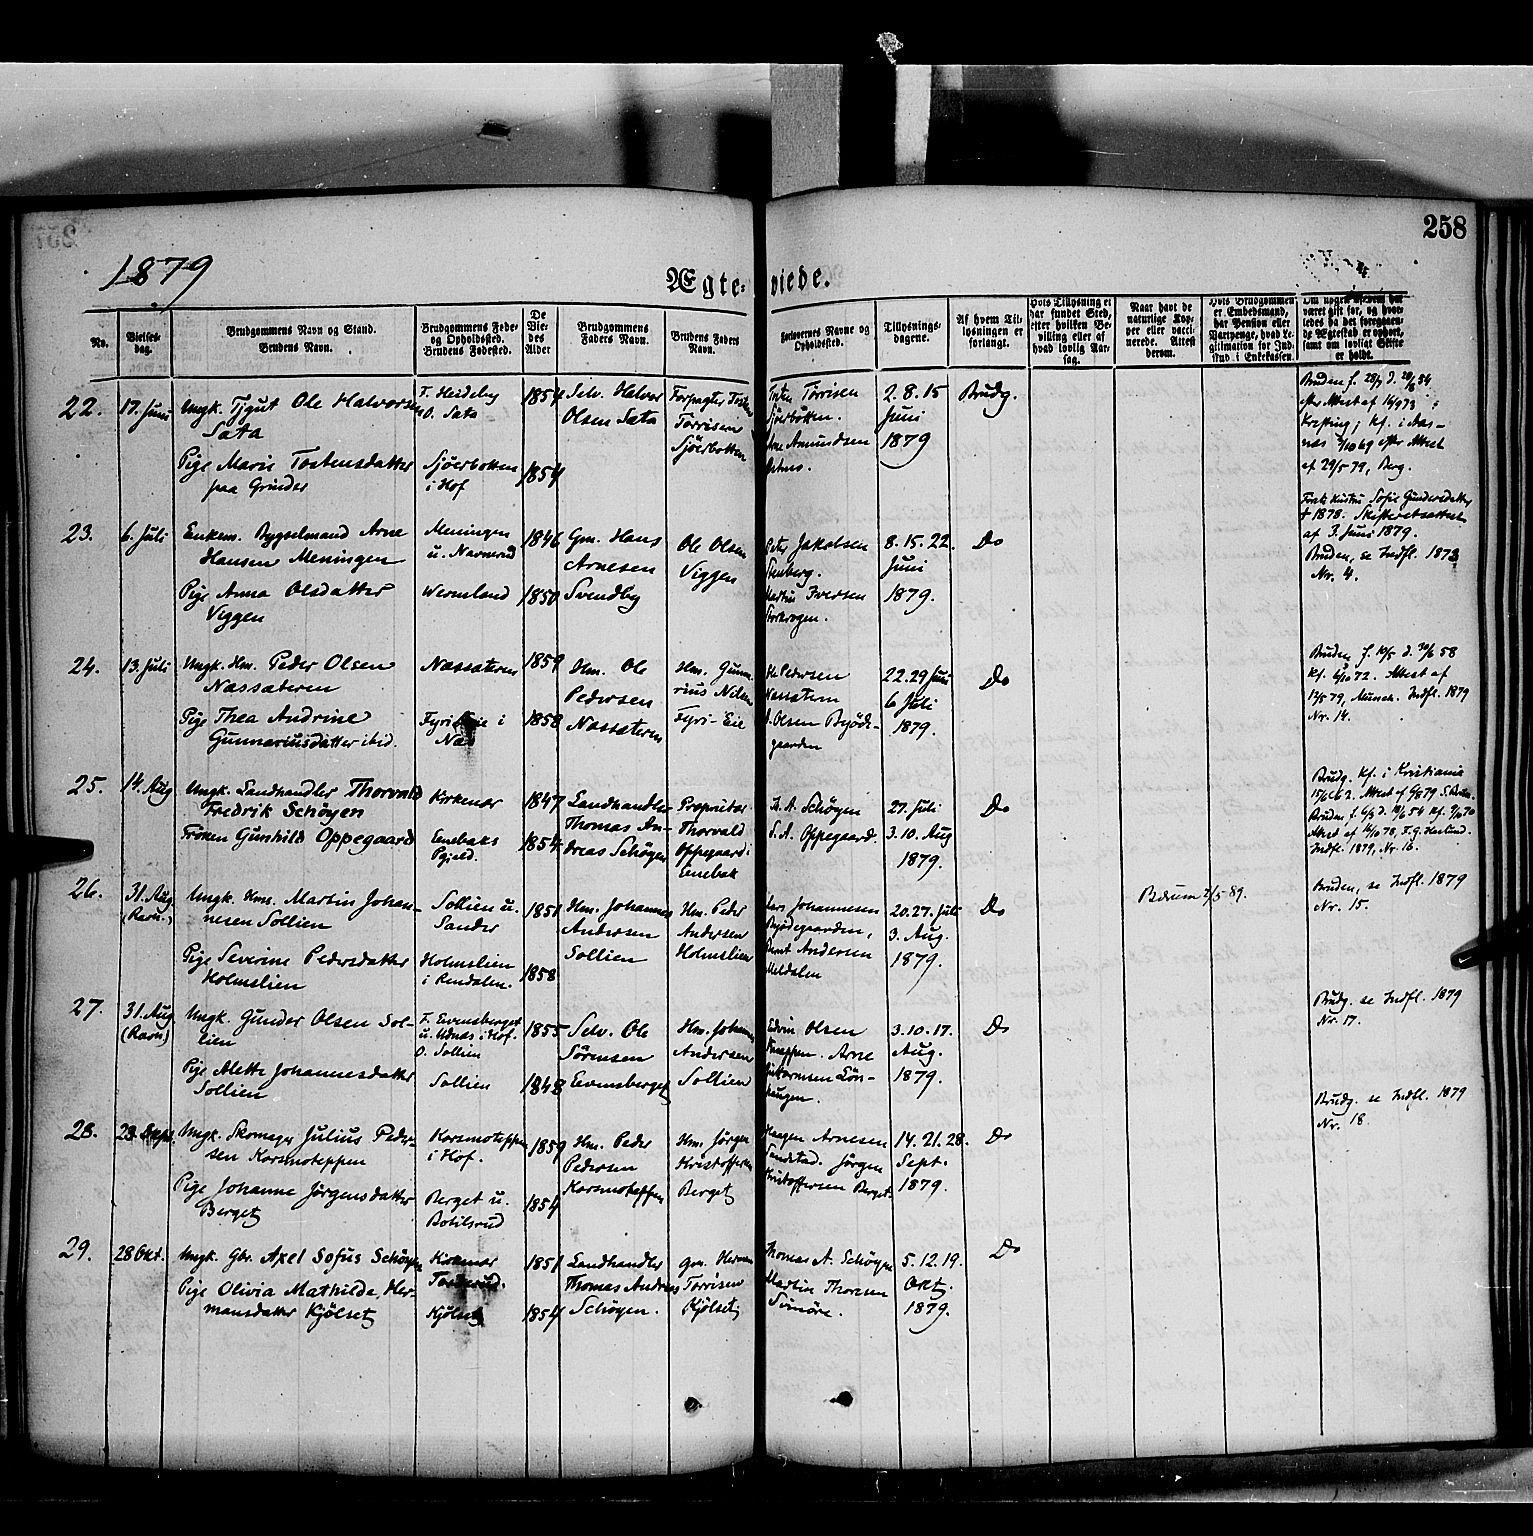 258
1879
Ægteviede.
No.
Vielses-
dag.
Brudgommens Navn og Stand.
Brudens Navn.
Brudgommens Føde-
og Opholdssted.
Brudens Fødested.
De
Vie-
des
Alder
Brudgommens
Faders Navn.
Brudens Faders
Navn.
Forlovernes Navne og
Opholdssted.
Tillysnings-
dagene.
Af hvem Til-
lysningen er
forlangt.
Hvis Tillysning ei
har fundet Sted,
efter hvilken Be-
villing eller af
hvad lovlig Aar-
sag.
Naar havt de
naturlige Kop-
per eller vacci-
nerede. Attest
derom.
Hvis Brudgommen
er Embedsmand,
har Pension eller
Vartpenge, hvad Le-
gitimation for Ind-
skud i Enkekassen.
Om nogen af dem har
været gift før, og hvor-
ledes da det foregaaen-
de Ægteskab er ophørt,
samt om lovligt Skifte
er holdt.
22.
17. Juni
Ungk. Tjgut Ole Halvorsen
Sata
Pige Marie Tostensdatter
paa Grinder
F. Heideby
O. Sata
Sjöerbotten
i Hof
1854
1854
Selv. Halvor
Olsen Sata
Forpagter Tosten
Torrisen
Sjöerbotten
Törrisen
Sjöerbotten.
Arne Amundsen
2. 8. 15
Juni
1879
Brudg.
Bruden f.
efter Attest af
Kf. i Aas-
nes efter Attest
af 29/5 79, Berg.
23.
6. Juli
Enkem. Bygselmand Arne
Hansen Meningen
Pige Anna Olsdatter
Viggen
Meningen
u. Navnerud
Wermland
1846
1850
Gm. Hans
Arnesen
Svendby
Ole Olsen
Viggen
Peter Jakobsen
Stenberg.
Martin Iversen
Storkrogen.
8. 15. 22.
Juni
1879.
Do
Sofie Gundersdatter
† 1878. Skifteretsattest
af 3. Juni 1879.
Bruden, se Indfl. 1873
Nr. 4.
24.
13. Juli
Ungk. Hm. Peder Olsen
Næssæteren
Pige Thea Andrine
Gunnariusdatter ibid.
Næssæteren
Fyri Eie i
Næs
1859
1858
Hm. Ole
Pedersen
Næssæteren
Hm. Gunna-
rius Nilsen
Fyri-Eie
Pedersen
Næssætern
Olsen Byöde-
gaarden
22. 29 Juni
6 Juli
1879.
Do
Kf. 6/10 72. Attest af
12/5 79, Indfl. 1879
Nr. 14.
25.
14. Aug
Ungk. Landhandler Thorvald
Fredrik Schöyen
Fröken Gunhild Oppegaard
Kirkenær
Enebaks
Pgjeld.
1847
1854
Landhandler
Thomas An-
dreas Schöyen
Proprietær
Thorvald
Oppegaard i
Enebak
Th. A. Schöyen
S. A. Oppegaard.
27. Juli
3. 10. Aug
1879.
Do
Brudg. Kf. i Kristiania
Attest af
Bruden f.
Indfl. 1879, Nr. 16.
26.
31. Aug
(Ravn.)
Ungk. Hms. Martin Johan-
nesen Sollien
Pige Severine Pedersdatter
Holmslien
Sollien u.
Sander
Holmslien
i Rendalen.
1851
1858
Hm. Johannes
Andersen
Sollien
Hm. Peder
Andersen
Holmslien
Lars Johannesen
Byödegaarden,
Bernt Andersen
Meldalen
20. 27. Juli
3. Aug.
1879.
Do
Bærum 2/5 89.
Bruden, se Indfl. 1879
Nr. 15.
27.
31. Aug
(Ravn)
Ungk. Gunder Olsen Sol-
lien
Pige Alette Johannesdatter
Sollien
F. Evensberget
u. Udnæs i Hof.
O. Sollien
Sollien
1855
1848
Selv. Ole
Sörensen
Evensberget
Hm. Johannes
Andersen
Sollien
Edvin Olsen
Arne
Lön-
haugen.
3. 10. 17.
Aug.
1879.
Do
Brudg. se Indfl. 1879
Nr. 17.
28.
28. Sept
Ungk. Skomager Julius Peder-
sen Korsmoteppen
Pige Johanne Jörgensdatter
Berget
Korsmoteppen
i Hof.
Berget u.
Botilsrud
1859
1854
Hm. Peder
Pedersen
Korsmoteppen
Hm. Jörgen
Kristoffersen
Berget
Haagen Arnesen
Sandstad. Jörgen
Kristoffersen Berget.
14. 21. 28.
Sept.
1879.
Do
Brudg. se Indfl. 1879
Nr. 18.
29.
28 Okt.
Ungk. Gbr. Axel Sofus Schöyen
Pige Olivia Mathilde Her-
mansdatter Kjölset
Kirkenær
Kjölset
1851
1854
Landhandler
Thomas Andreas
Schöyen.
Gm. Herman
Torrisen
Kjölset
Thomas A. Schöyen
Martin Thoresen
Svinöre.
5. 12. 19.
Okt.
1879.
Do